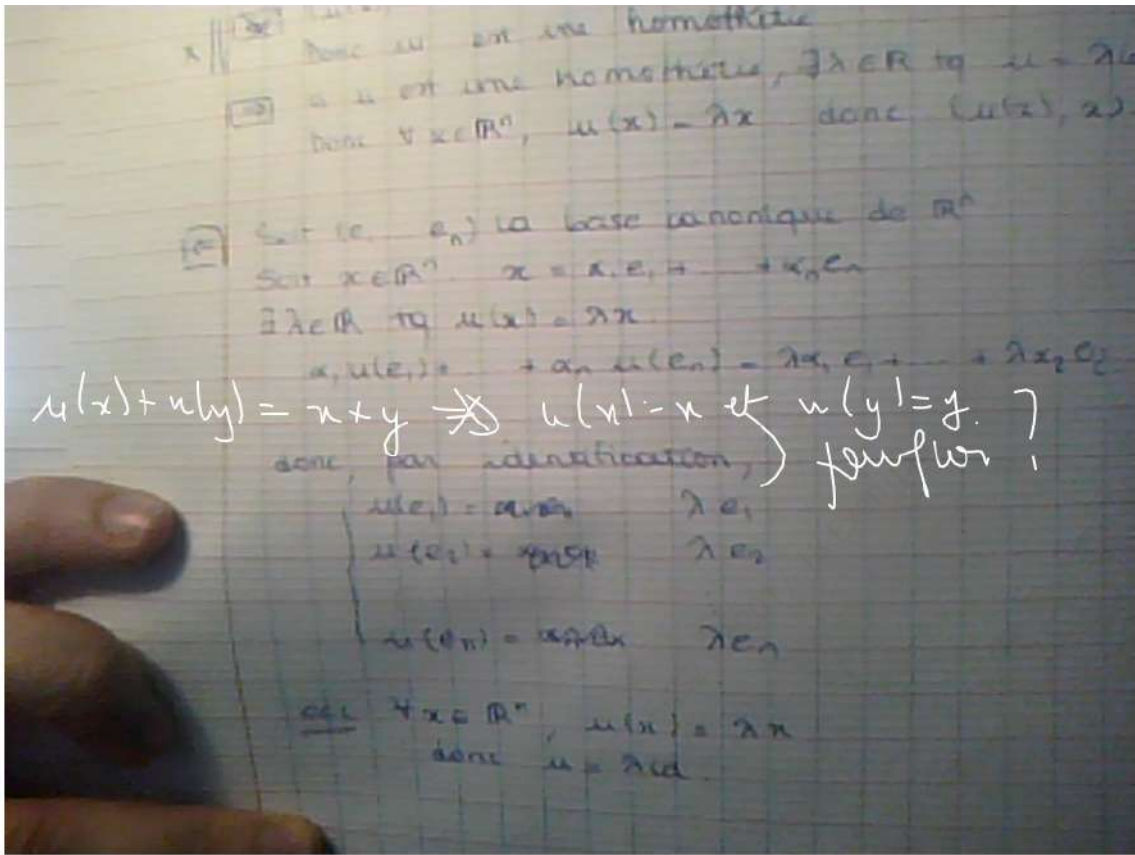 Donc u est une homothétie
⇒ u est une homothétie, ∃λ∈R tq u = λ
Donc ∀ x∈ℝⁿ, u(x) = λx donc (u(x), x)
⇐ Soit (e₁ eₙ) la base canonique de ℝⁿ
Soit x∈ℝⁿ x = α₁e₁ + + αₙeₙ
∃ λ∈ℝ tq u(x) = λx
α₁u(e₁) + + αₙ u(eₙ) = λα₁e₁ + ... + λα₂e₂
u(x)+u(y) = x+y ⇏ u(x) = x et u(y) = y. ?
donc, par identification,
u(e₁) = λe₁
u(e₂) = λe₂
u(eₙ) = λeₙ
∀x∈ℝⁿ, u(x) = λx
donc u = λid